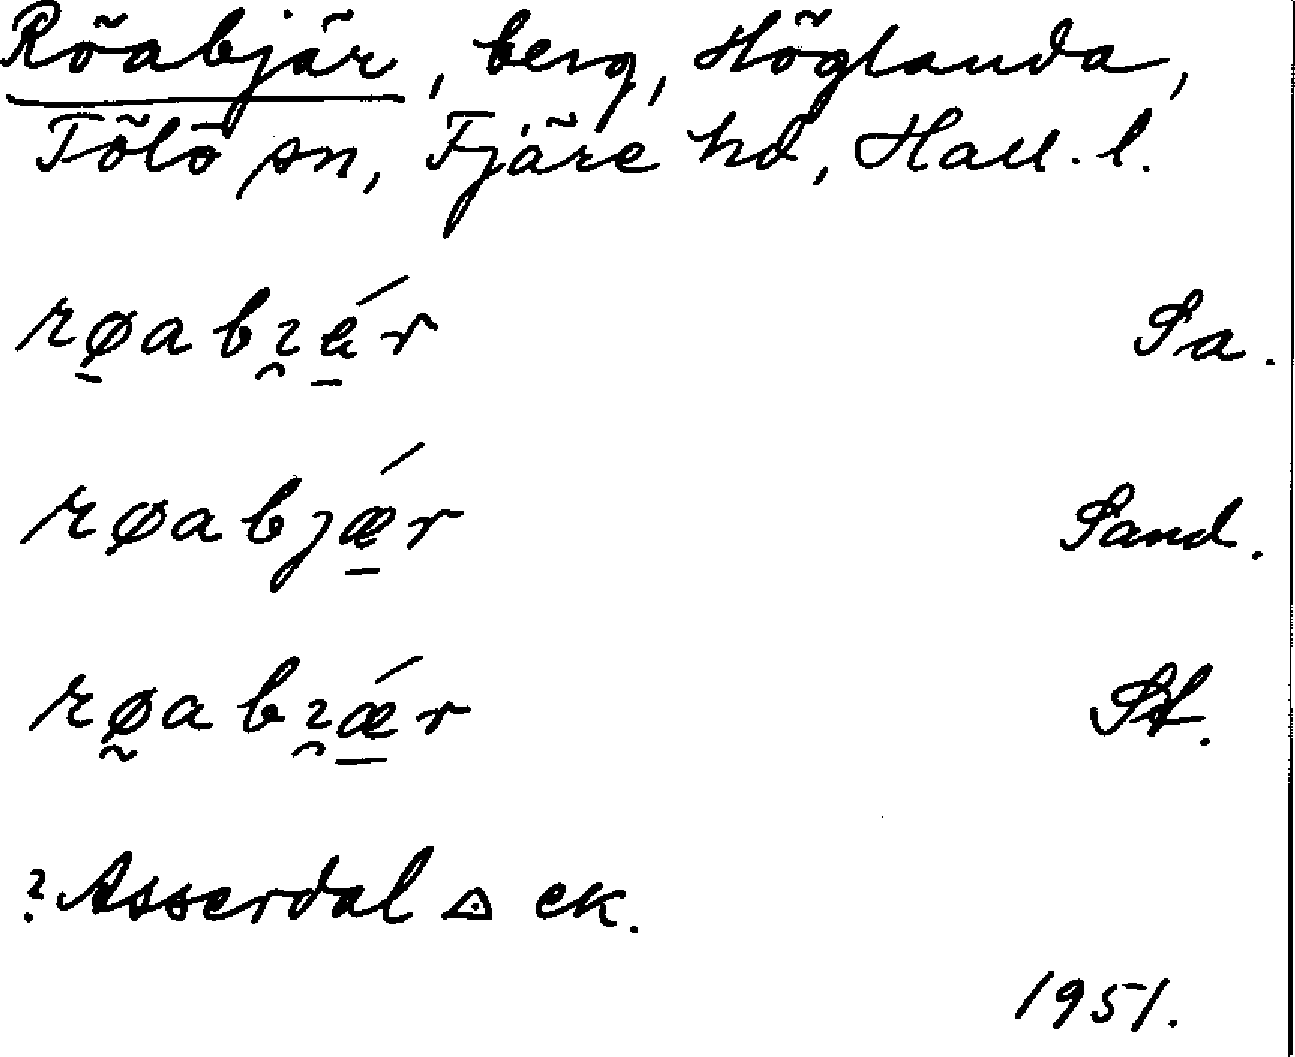 Röabjär, berg, Höglanda,
Tölö sn, Fjäre hd, Hall. l.
røabɿǽr Sa.
røabjǽr Sand.
røabɿǽr St.
? Asserdal ◬ ek.
1951.